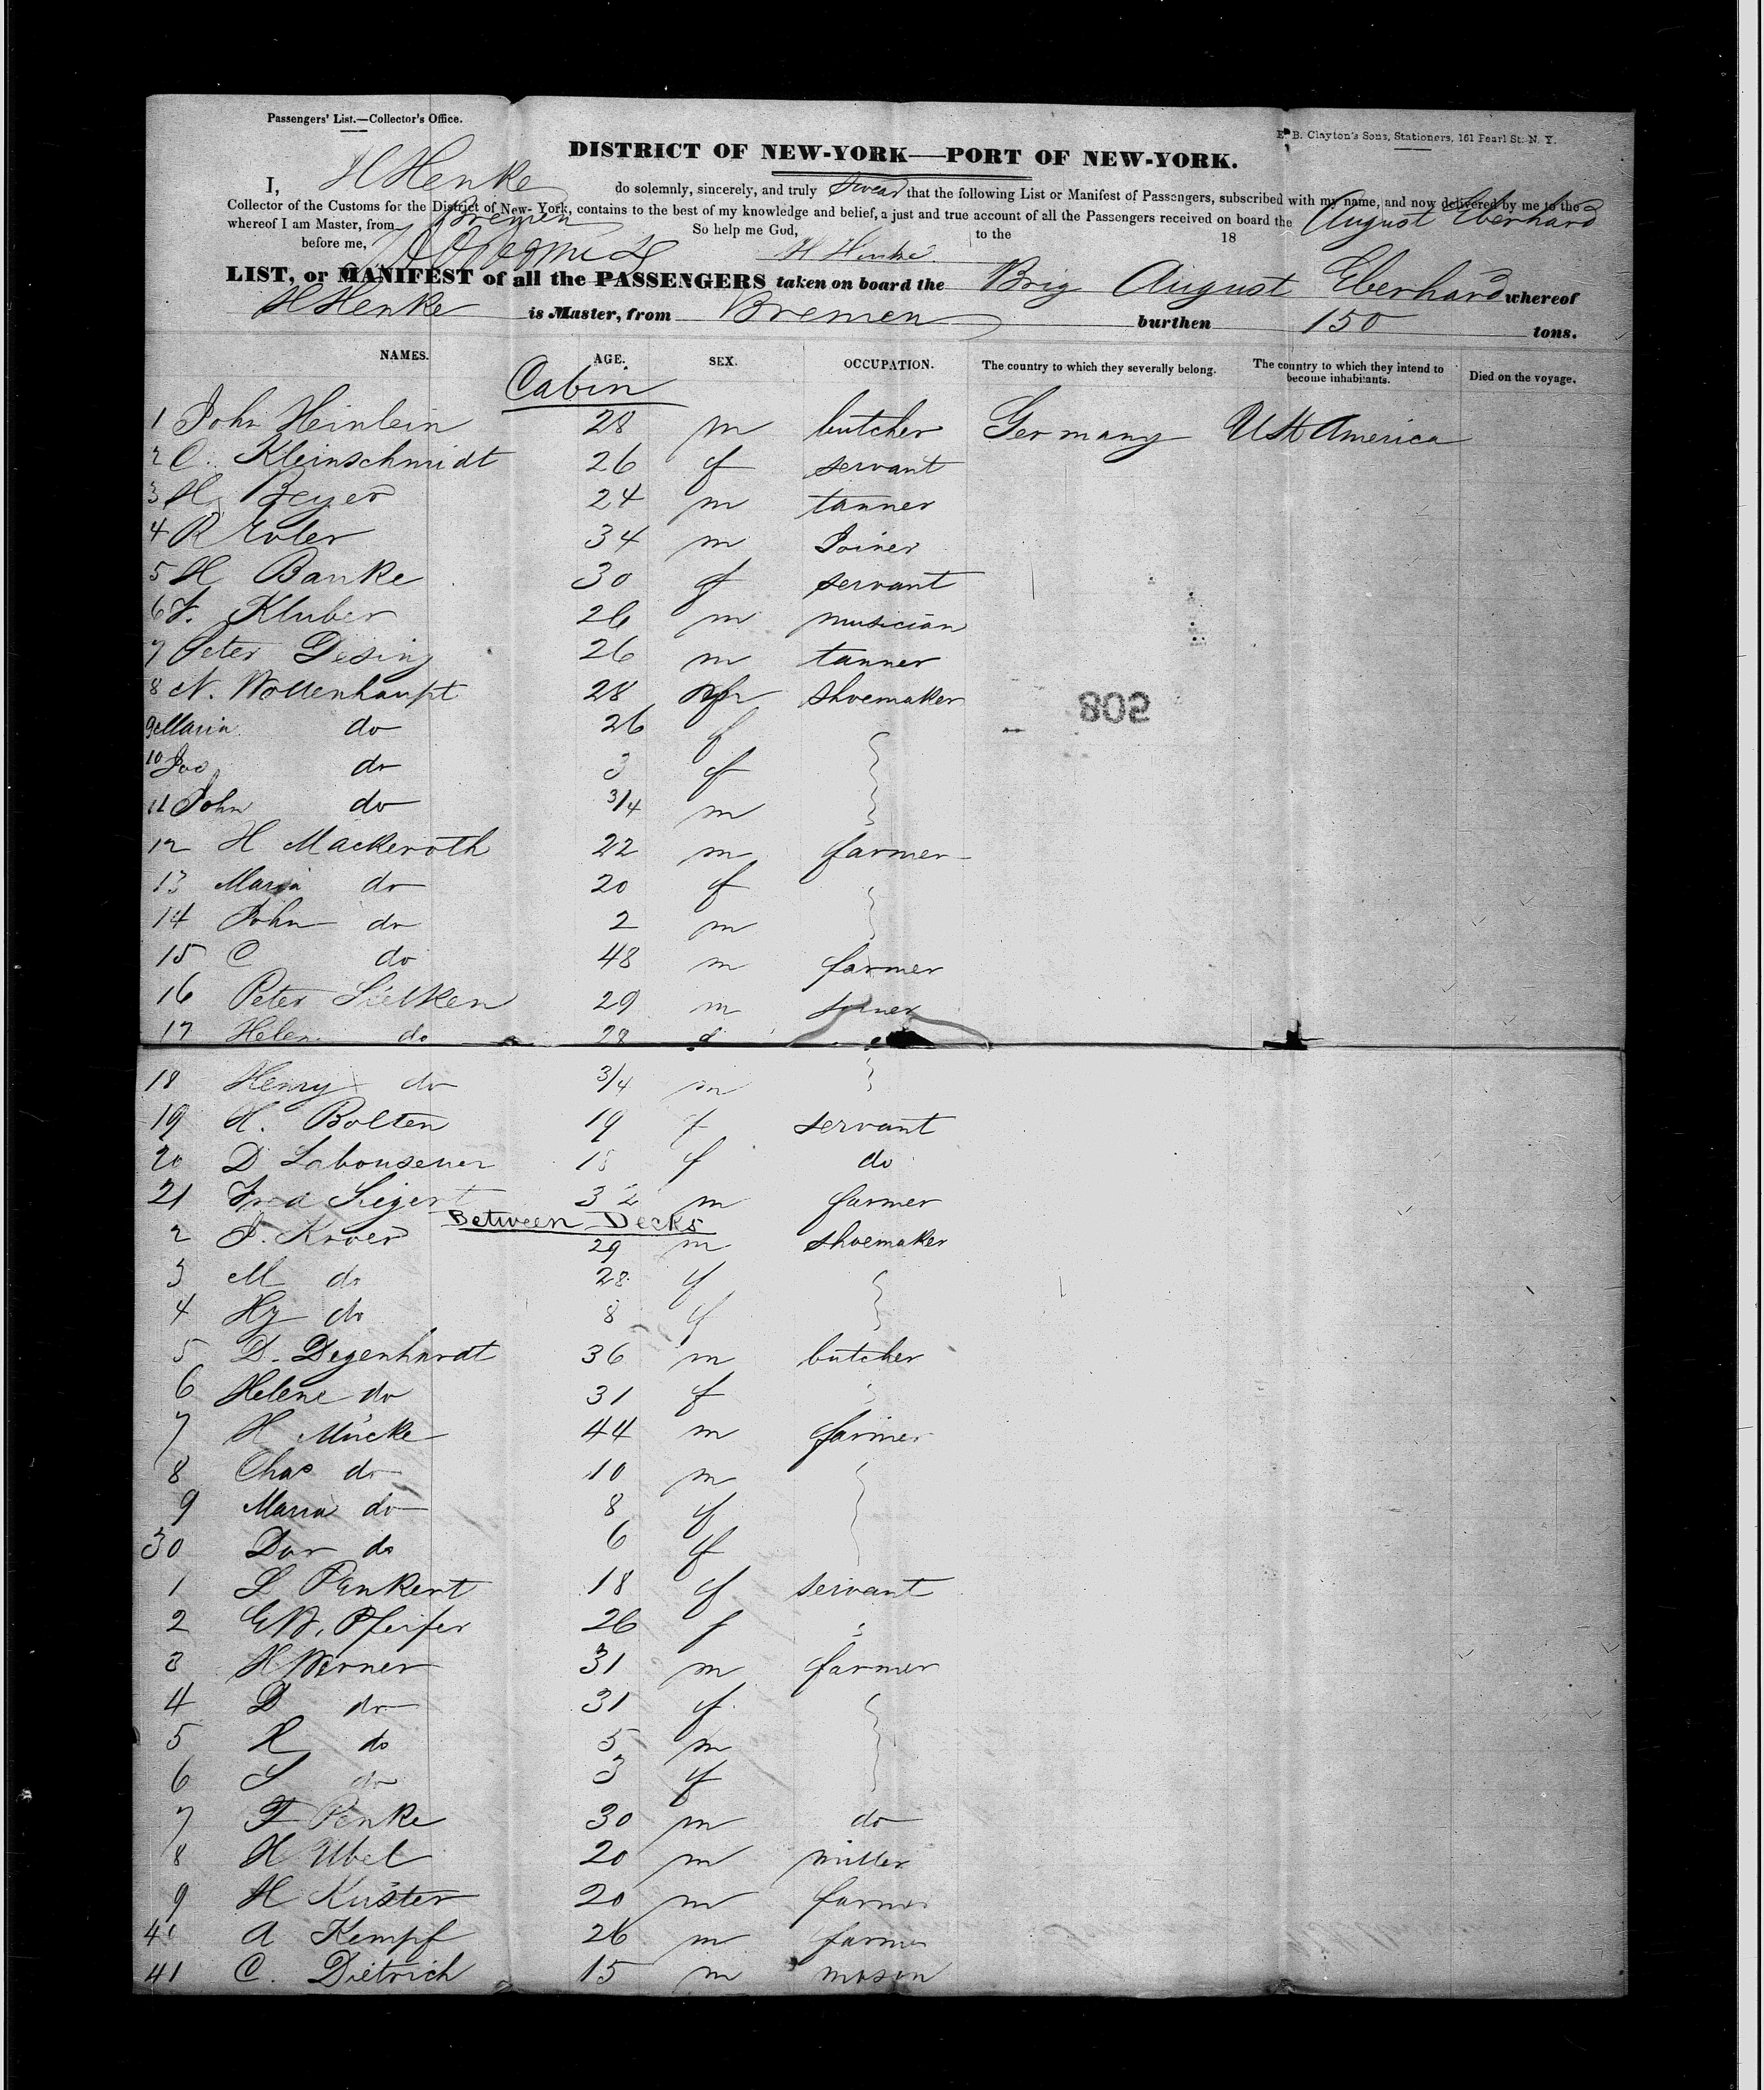 Passengers' List.—Collector's Office.
E. B. Clayton's Sons, Stationers, 161 Pearl St. N. Y.
DISTRICT OF NEW-YORK—PORT OF NEW-YORK.
I, H Henke do solemnly, sincerely, and truly swear that the following List or Manifest of Passengers, subscribed with my name, and now delivered by me to the
Collector of the Customs for the District of New-York, contains to the best of my knowledge and belief, a just and true account of all the Passengers received on board the August Eberhard
whereof I am Master, from Bremen So help me God, to the 18
before me, H Henke
LIST, or MANIFEST of all the PASSENGERS taken on board the Brig August Eberhard whereof
H Henke is Master, from Bremen burthen 150 tons.
NAMES. AGE. SEX. OCCUPATION. The country to which they severally belong. The country to which they intend to become inhabitants. Died on the voyage.
Cabin
1 John Heinlein 28 m butcher Germany USt America
2 C. Kleinschmidt 26 f servant
3 H Beyer 24 m tanner
4 R 34 m Joiner
5 H Banke 30 f servant
6 F. Kluber 26 m musician
7 Peter Desing 26 m tanner
8 N. Wollenhaupt 28 m shoemaker
9 Maria do 26 f
10 do 3 f
11 John do 3/4 m
12 H Mackeroth 22 m farmer
13 Maria do 20 f
14 John do 2 m
15 C do 48 m farmer
16 Peter 29 m joiner
17 Helen do 28 f
18 Henry do 3/4 m
19 H. Bolten 19 f servant
20 D f do
21 Fred Siegert 32 m farmer
Between Decks
2 J. Kroer 29 m shoemaker
3 M do 28 f
4 Hy do 8 f
5 D. Degenhardt 36 m butcher
6 Helene do 31 f
7 H Mücke 44 m farmer
8 Chas do 10 m
9 Maria do 8 f
30 Dor do 6 f
1 L Penkert 18 f servant
2 EW. Pfeifer 26 f "
3 H Werner 31 m farmer
4 D do 31 f
5 H do 5 m
6 S do 3 f
7 F Penke 30 m do
8 H Ubel 20 m miller
9 H Küster 20 m farmer
4 A Kempf 26 m farmer
41 C. Dietrich 15 m mason